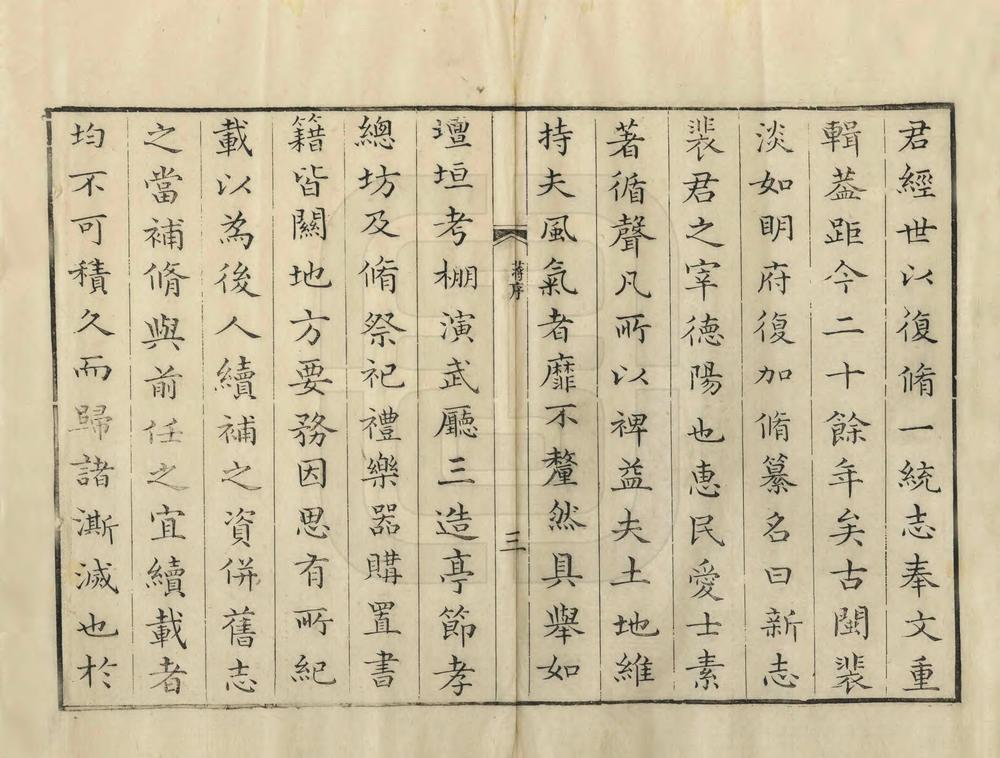 君經世以復脩一統志奉文重
輯葢距今二十餘年矣古閩裴
淡如明府復加脩纂名曰新志
裴君之宰德陽也惠民愛士素
著循聲凡所以裨益夫土地維
持夫風氣者靡不釐然具舉如
蔣序
三
壇垣考棚演武廳三造亭節孝
總坊及脩祭祀禮樂器購置書
籍皆關地方要務因思有所紀
載以為後人續補之資併舊志
之當補脩與前任之宜續載者
均不可積久而歸諸澌滅也於